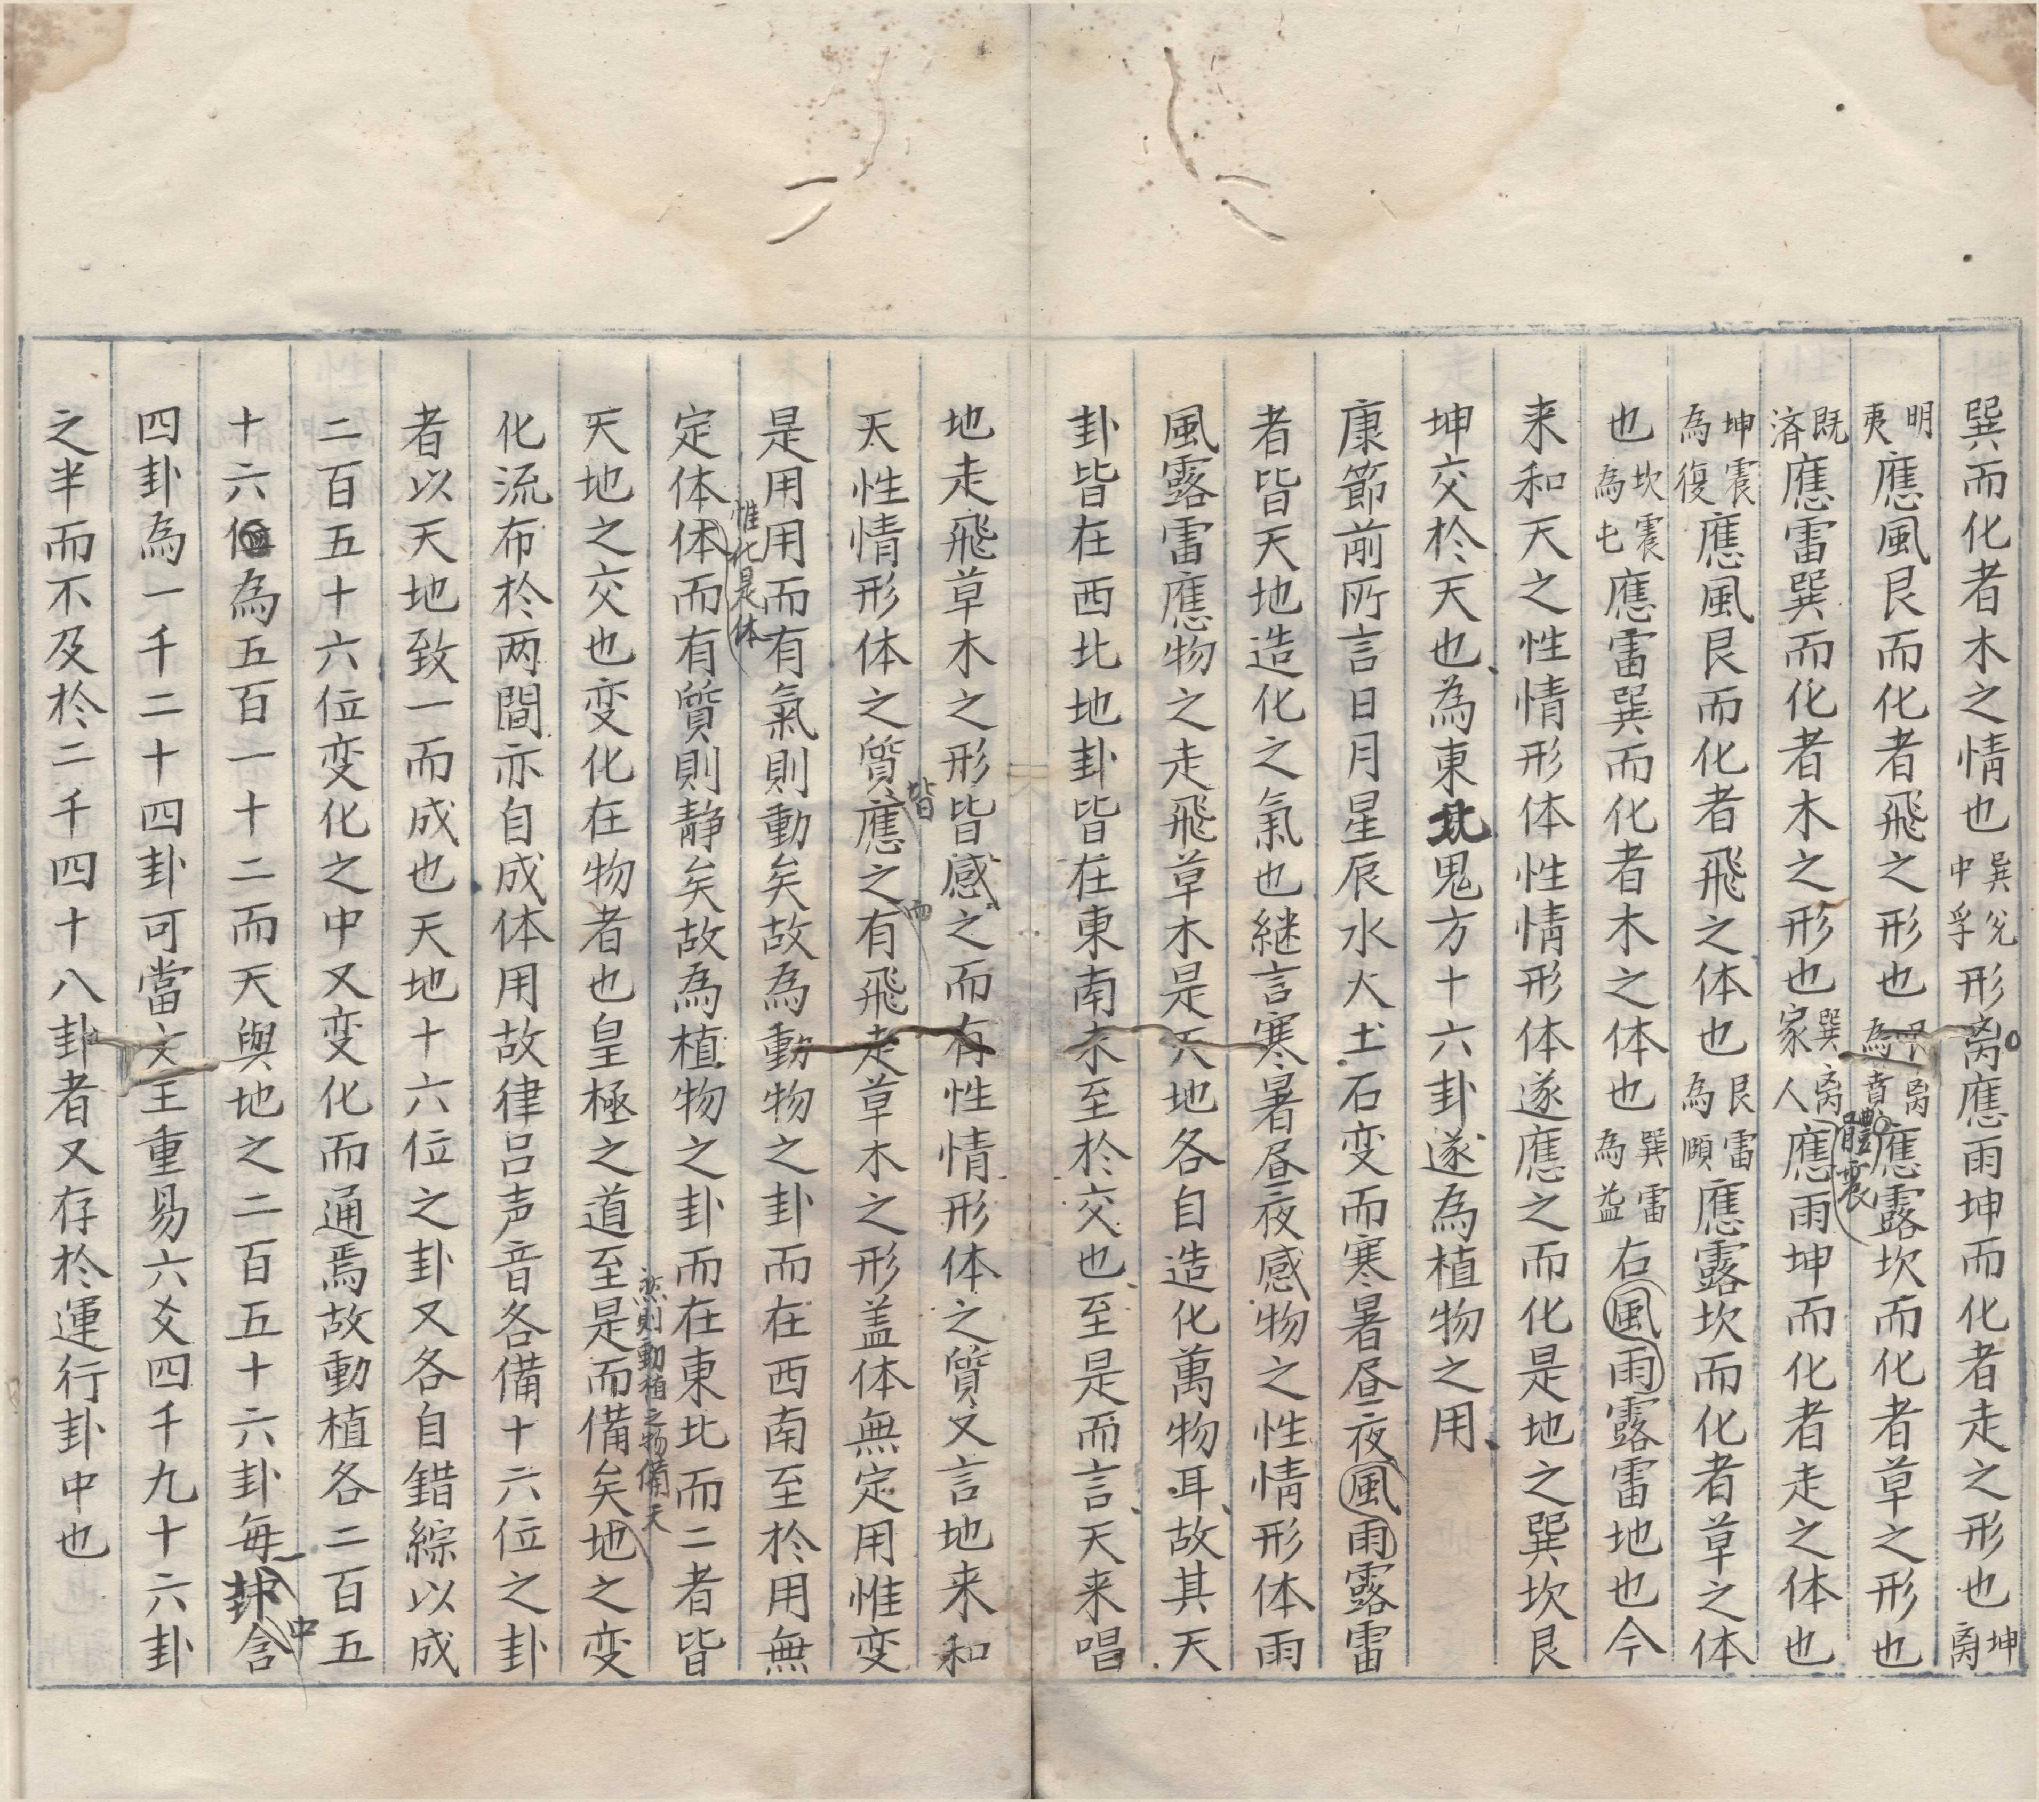 巽而化者木之情也巽兌中孚形离應雨坤而化者走之形也坤离
明夷應風艮而化者飛之形也艮离為賁應露坎而化者草之形也
既済應雷巽而化者木之形也巽离家人體震應雨坤而化者走之体也
坤震為復應風艮而化者飛之体也艮雷為頤應露坎而化者草之体
也坎震為屯應雷巽而化者木之体也巽雷為益右風雨露雷地也今
来和天之性情形体性情形体遂應之而化是地之巽坎艮
坤交於天也為東北鬼方十六卦遂為植物之用
康節前所言日月星辰水火土石变而寒暑昼夜風雨露雷
者皆天地造化之氣也継言寒暑昼夜感物之性情形体雨
風露雷應物之走飛草木是天地各自造化萬物耳故其天
卦皆在西北地卦皆在東南未至於交也至是而言天来唱
地走飛草木之形皆感之而有性情形体之質又言地来和
天性情形体之質皆應之而有飛走草木之形盖体無定用惟变
是用用而有氣則動矣故為動物之卦而在西南至於用無
定体惟化是体体而有質則静矣故為植物之卦而在東北而二者皆
天地之交也变化在物者也皇極之道至是而備矣然則動植之物備天地之变
化流布於两間亦自成体用故律呂声音各備十六位之卦
者以天地致一而成也天地十六位之卦又各自錯綜以成
二百五十六位变化之中又变化而通焉故動植各二百五
十六位為五百一十二而天與地之二百五十六卦每一卦中含
四卦為一千二十四卦可當文王重易六爻四千九十六卦
之半而不及於二千四十八卦者又存於運行卦中也